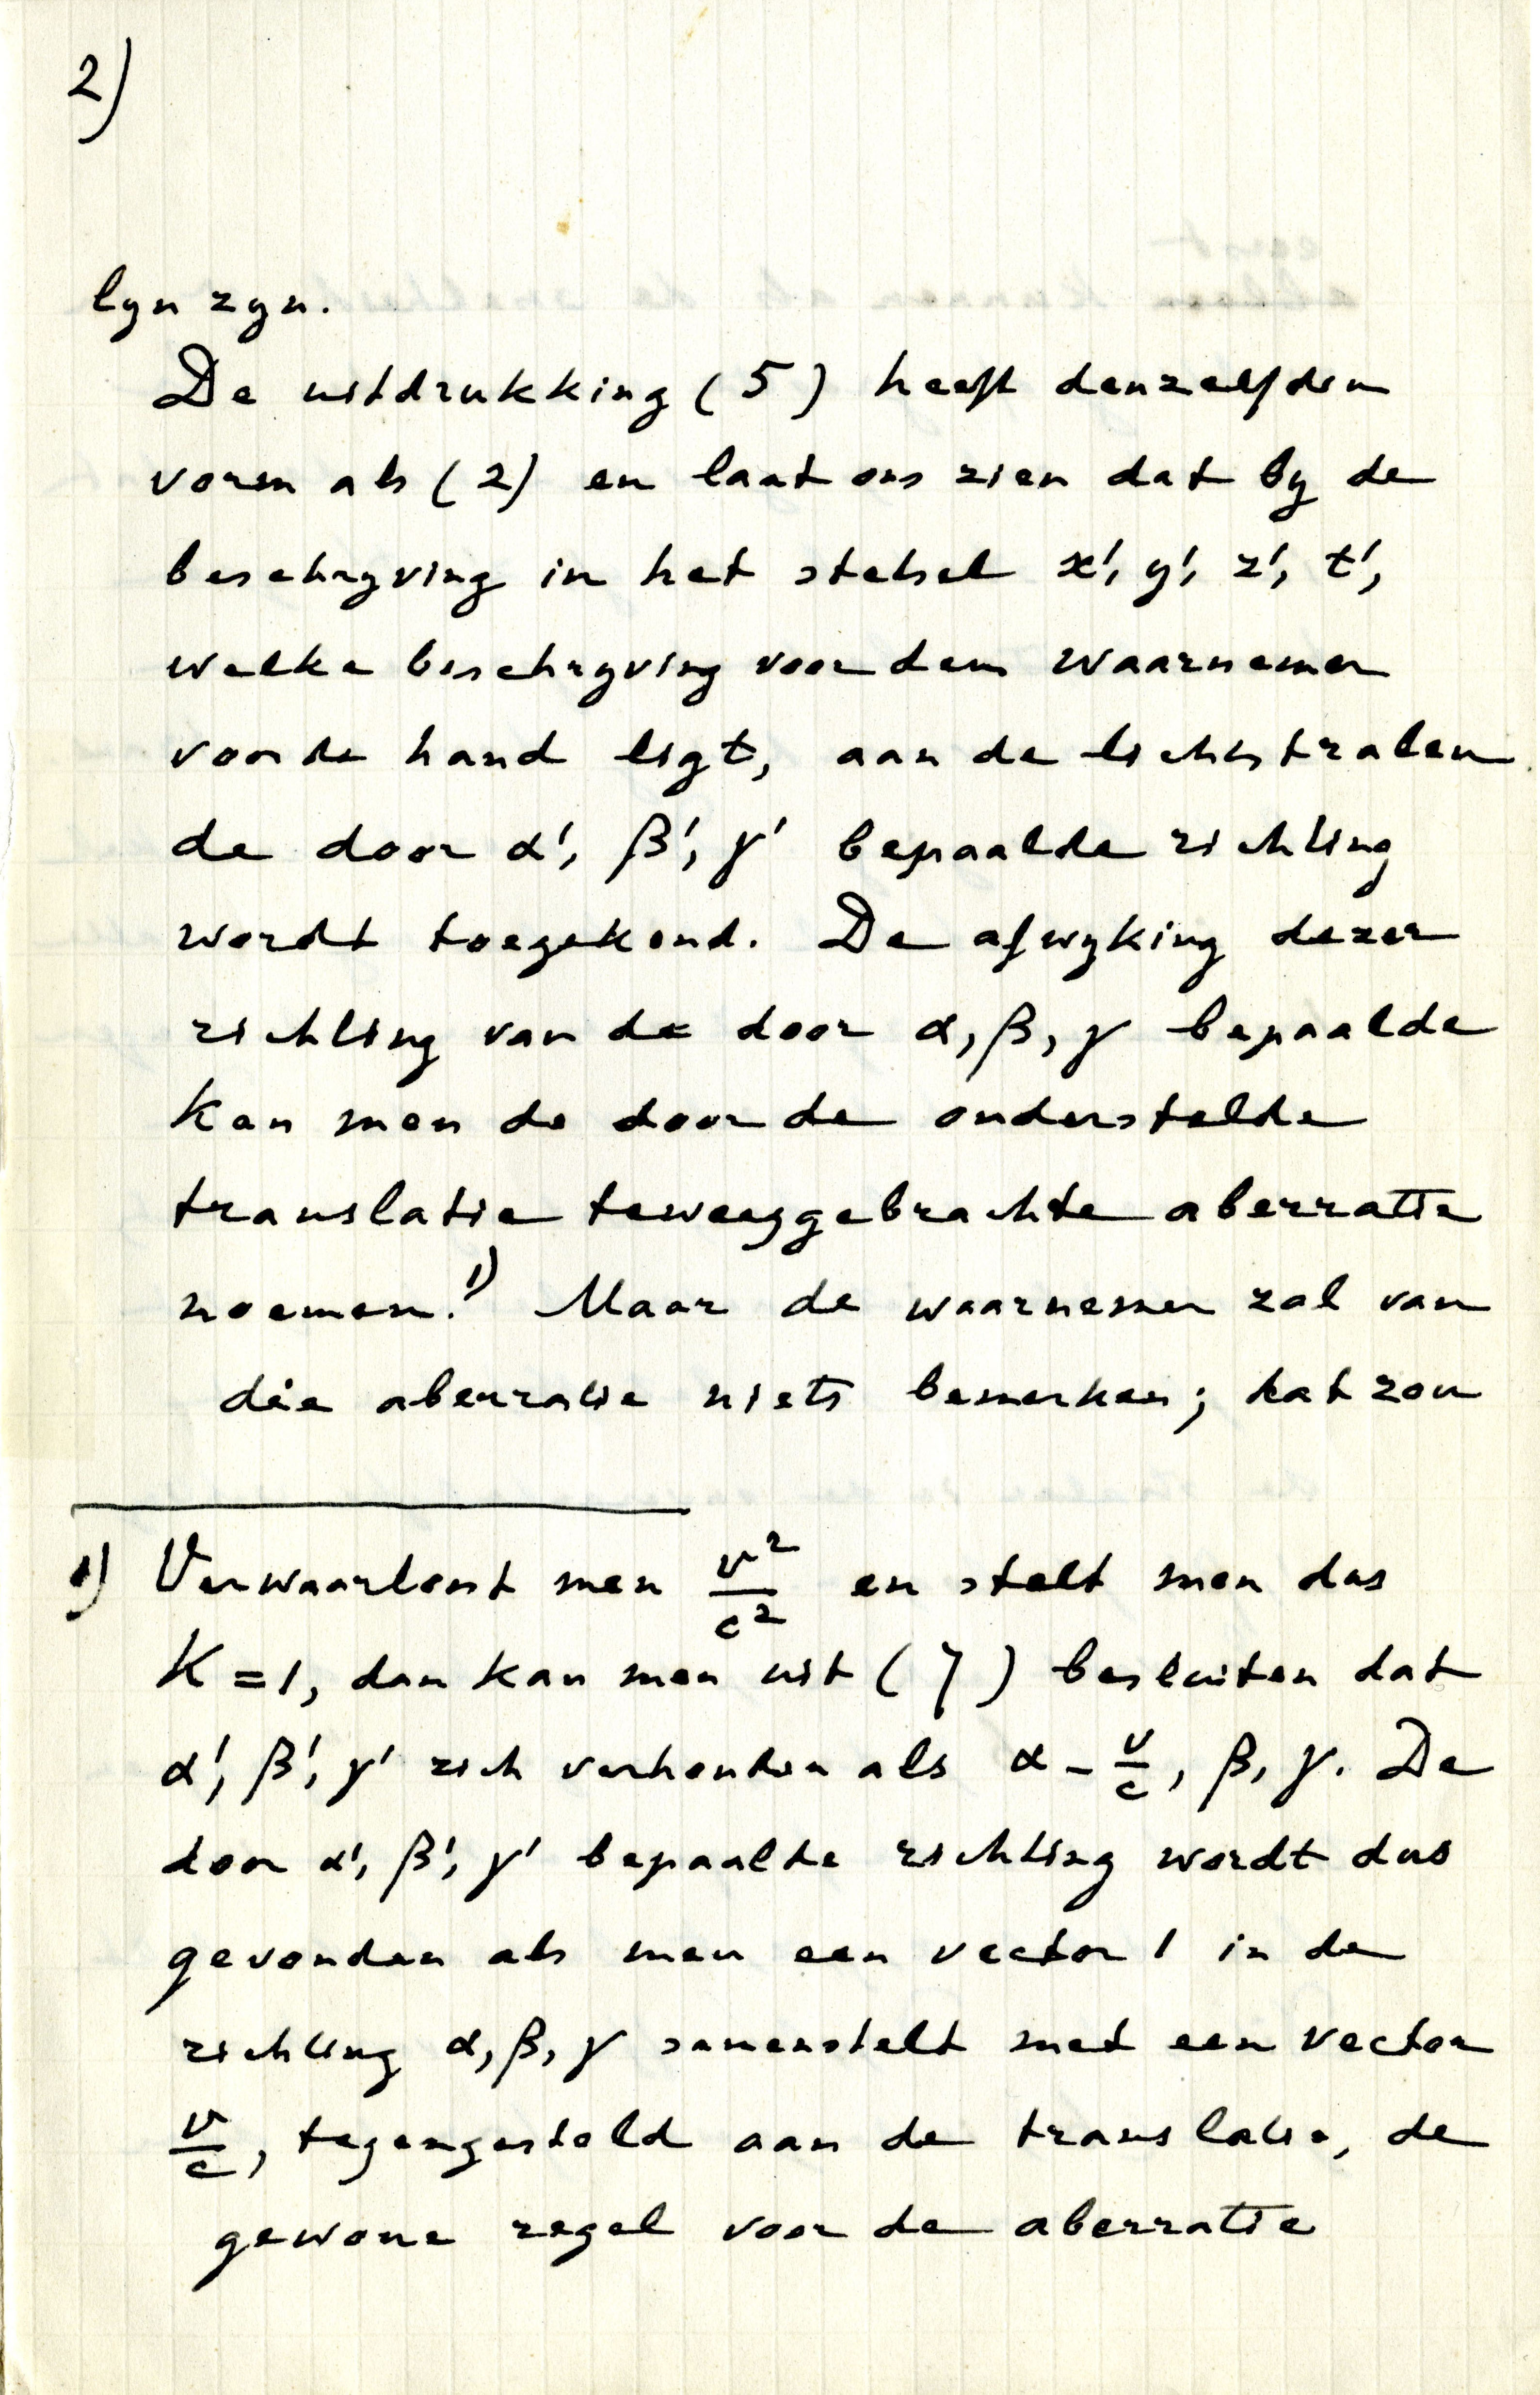 2)
lyn zyn.
De uitdrukking (5) heeft denzelfden
vorm als (2) en laat ons zien dat by de
beschryving in het stelsel x', y', z', t',
welke beschryving voor den waarnemer
voor de hand ligt, aan de lichtstralen
de door α', β', γ' bepaalde richting
wordt toegekend. De afwyking dezer
richting van de door α, β, γ bepaalde
kan men de door de onderstelde
translatie teweeggebrachte aberratie
noemen.¹⁾ Maar de waarnemer zal van
die aberratie niets bemerken; dat zou
1) Verwaarloost men v²/c² en stelt men dus
K = 1, dan kan men uit (7) besluiten dat
α', β', γ' zich verhouden als α - v/c, β, γ. De
door α', β', γ' bepaalde richting wordt dus
gevonden als men een vector 1 in de
richting α, β, γ samenstelt met een vector
v/c, tegengesteld aan de translatie, de
gewone regel voor de aberratie